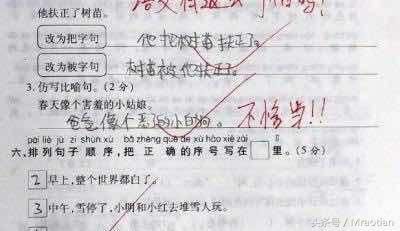 他扶正了树苗。
改为把字句 他把树苗扶正了。
改为被字句 树苗被他扶正了。
3. 仿写比喻句。(2 分)
春天像个害羞的小姑娘。
爸爸像个 的小白狗。 不恰当!!
pái liè jù zi shùn xù bǎ zhèng què de xù hào xiě zài lǐ
六、排列句子顺序,把正确的序号写在 里。(5 分)
2 早上,整个世界都白了。
3 中午,雪停了,小明和小红去堆雪人玩。
头条号/Miraotian